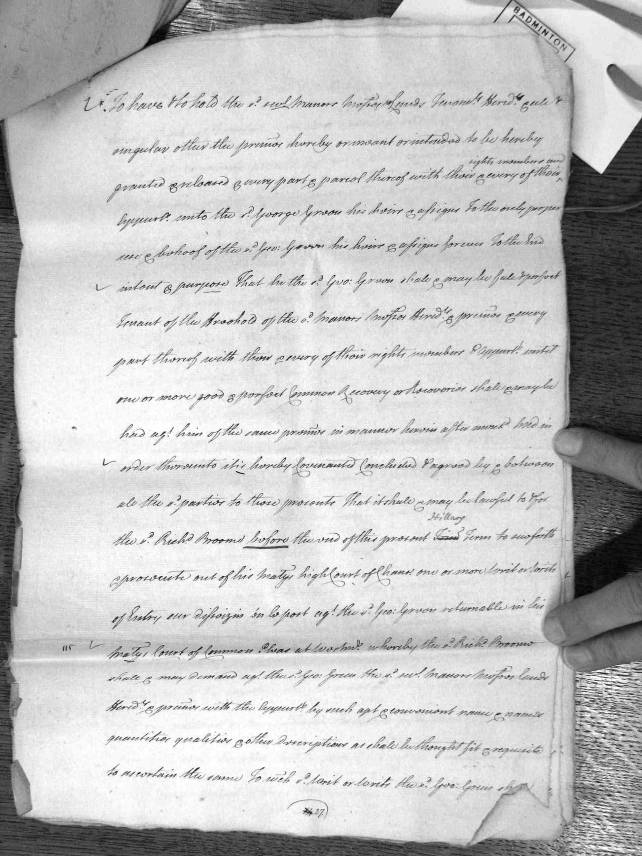 BADMINTON
To have & to hold the sd. sevl. Manors Messes. Lands Tenemts. Heredts. & all &
singular other the premes hereby or meant or intended to be hereby
rights members and
granted & released & every part & parcel thereof with their & every of their
Appurts. unto the sd. George Green his heirs & assigns To the only proper
use & behoof of the sd. Geo: Green his heirs & assigns forever To the End
intent & purpose That he the sd. Geo: Green shall & may be full & perfect
Tenant of the Freehold of the sd. Manors Messes Heredts. & premes & every
part thereof with their & every of their rights members & Appurts. until
one or more good & perfect Common Recovery or Recoveries shall & may be
had agt. him of the same premes in manner herein after mencd. And in
order thereunto it is hereby Covenanted Concluded & agreed by & between
all the sd. parties to these presents That it shall & may be lawful to & for
Hillary
the sd. Richd. Broome before the end of this present Term to sue forth
& prosecute out of his Matys high Court of Chanc. one or more Writ or Writs
of Entry sur disseizin en le post agt. the sd. Geo: Green returnable in his
Matys. Court of Common Pleas at Westmr. whereby the sd. Richd. Broome
shall & may demand agt. the sd. Geo: Green the sd. sevl. Manors Messes lands
Heredts. & premes with the Appurts. by such apt & convenient name & names
quantities qualities & other Descriptions as shall be thought fit & requisite
to ascertain the same To wch. sd. Writ or Writs the sd. Geo: Green
27